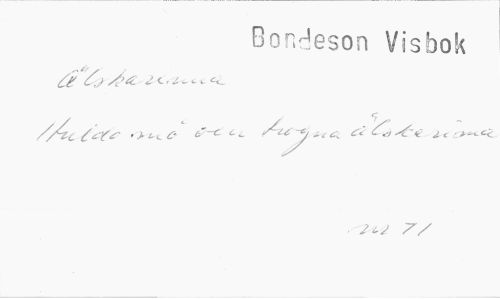 Bondeson Visbok
Älskarinna
Hulda mö och trogna älskarinna
nr 71